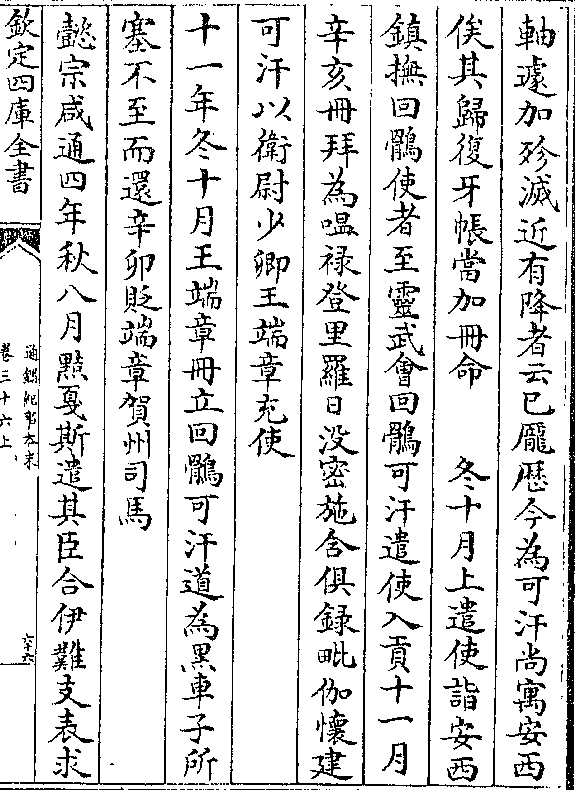 軸遽加殄滅近有降者云已厖歴今為可汗尚寓安西
俟其歸復牙帳當加冊命　冬十月上遣使詣安西
鎮撫回鶻使者至靈武會回鶻可汗遣使入貢十一月
辛亥冊拜為嗢禄登里羅日没密施合俱録毗伽懷建
可汗以衛尉少卿王端章充使
十一年冬十月王端章冊立回鶻可汗道為黑車子所
塞不至而還辛卯貶端章賀州司馬
懿宗咸通四年秋八月黠戛斯遣其臣合伊難支表求
欽定四庫全書
通鑑紀事本末
卷三十六上